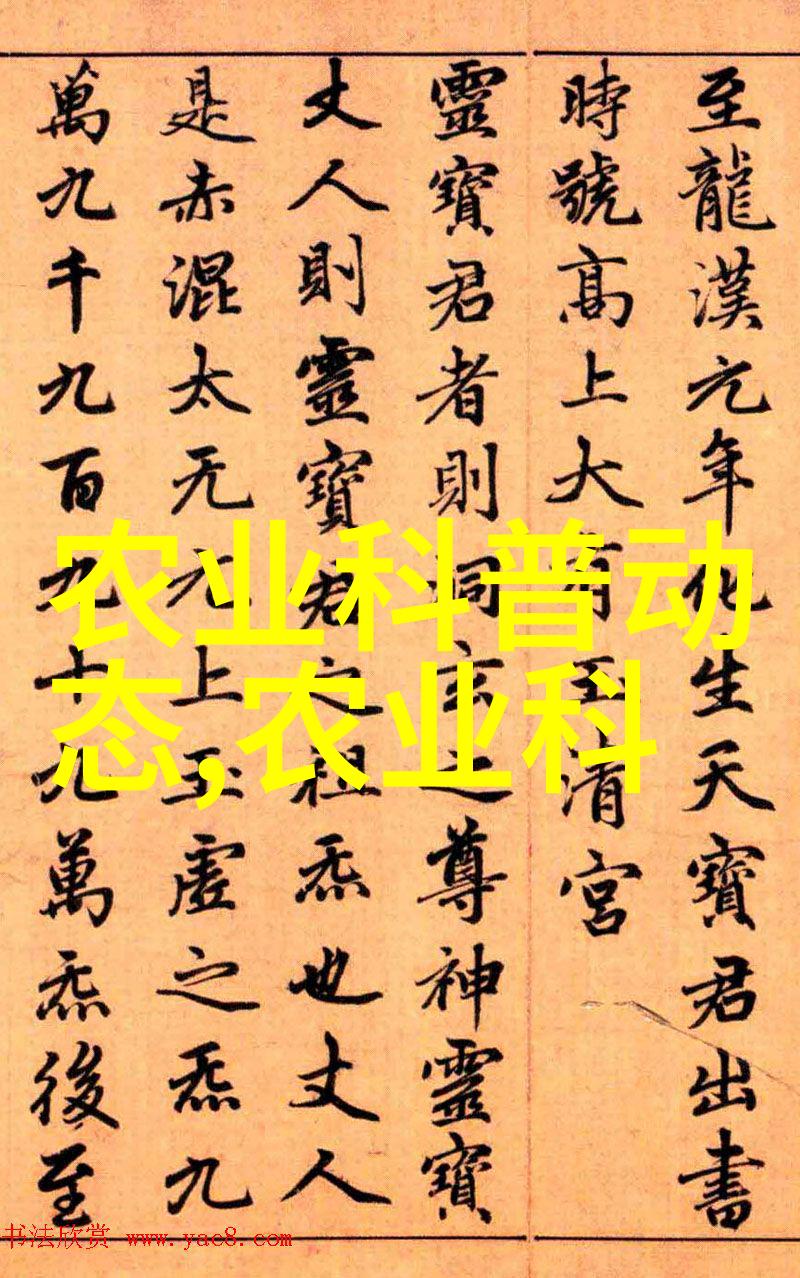 至龍漢元年化生天寶君出書
時號髙上大有玉清宮
靈寶君者則洞玄之尊神靈寶
丈人則靈寶君之祖炁也丈人
是赤混太无元上玉虛之炁九
萬九千九百九十九萬炁後至
农业科普动
态,农业科
书法欣赏 www.yac8.com